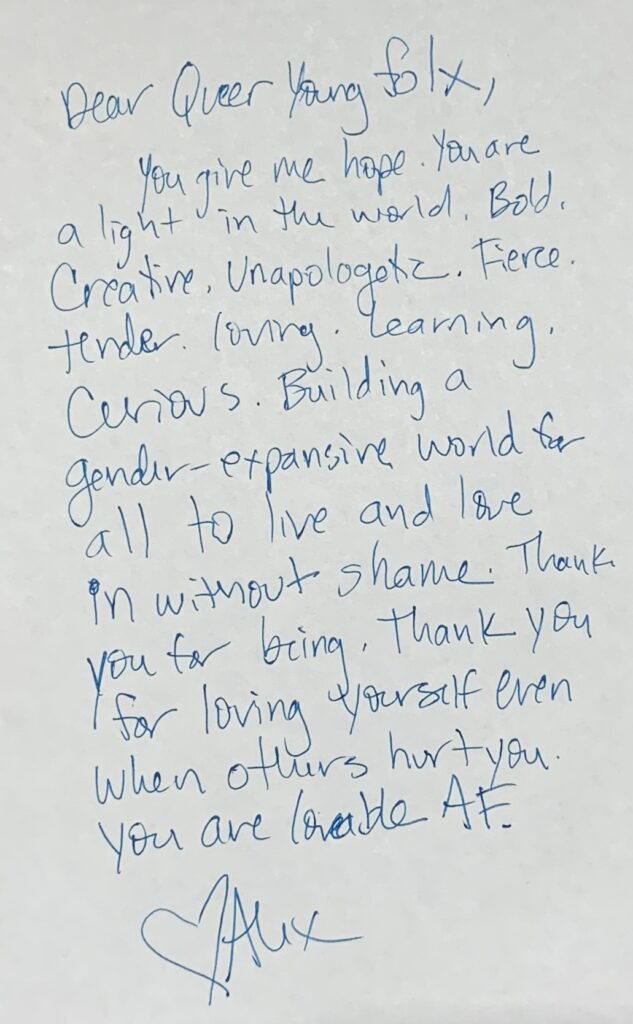 Dear Queer Young folx,
You give me hope. You are
a light in the world. Bold.
Creative. Unapologetic. Fierce.
tender. loving. Learning.
Curious. Building a
gender-expansive world for
all to live and love
in without shame. Thank
you for being. Thank you
for loving yourself even
when others hurt you.
You are loveable AF.
♡Alix